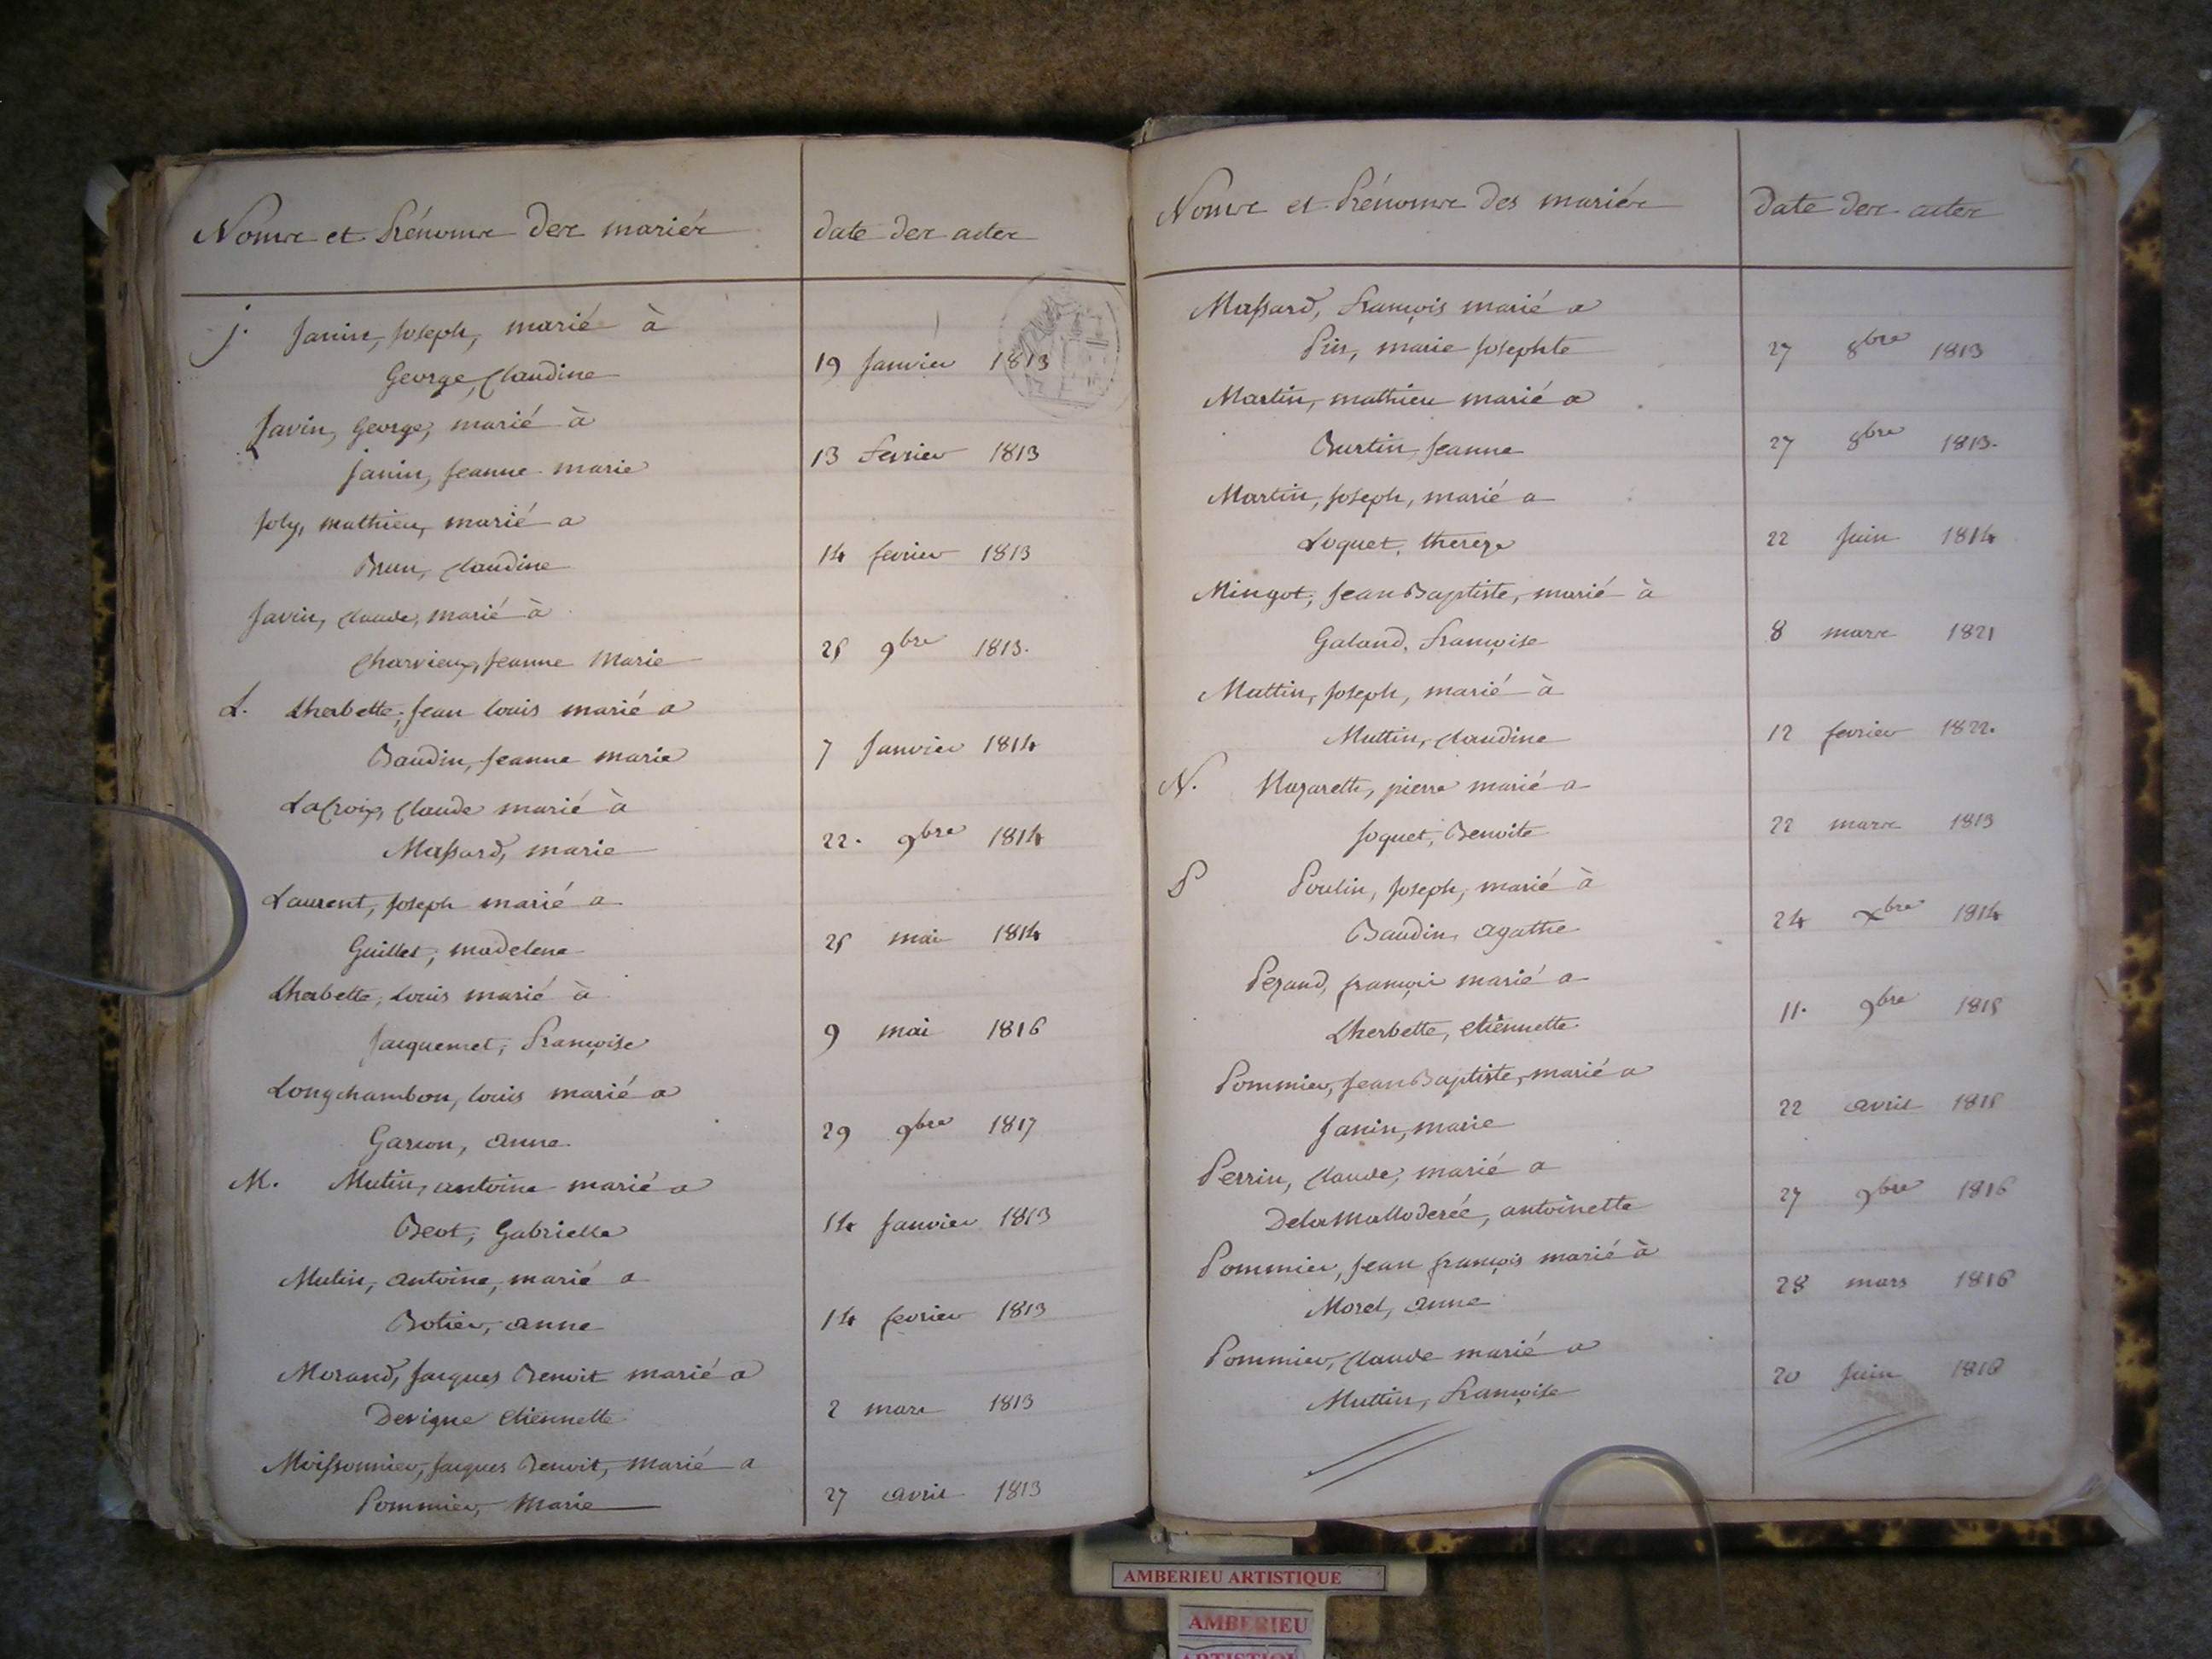 Noms et Prénoms des mariés
date des actes
j. Janin, Joseph, marié à
George, Claudine
19 Janvier 1813
Javin, George, marié à
janin, Jeanne marie
13 Fevrier 1813
Joly, mathieu, marié a
Brun, Claudine
14 fevrier 1813
Javin, claude, marié à
Charvieux, Jeanne Marie
25 9bre 1813.
L. Lherbette, Jean louis marié a
Baudin, Jeanne marie
7 Janvier 1814
LaCroix, Claude marié à
Massard, marie
22. 9bre 1814
Laurent, Joseph marié a
Guillet, madelene
25 mai 1814
Lherbette, Louis marié à
Jacquemet, Françoise
9 mai 1816
Longchambon, louis marié a
Garcon, anne
29 9bre 1817
M. Mutin, antoine marié a
Beot, Gabrielle
14 Janvier 1813
Mutin, antoine, marié a
Botier, anne
14 fevrier 1813
Morand, Jacques Benoit marié a
Devigne etiennette
2 mars 1813
Moissonnier, Jacques Benoit, marié a
Pommier, Marie
27 avril 1813
Noms et Prénoms des mariés
Date des actes
Massard, François marié a
marie Josephte
27 8bre 1813
Martin, mathieu marié a
Burtin, Jeanne
27 8bre 1813.
Martin, Joseph, marié a
Loquet, therese
22 Juin 1814
Mingot, Jean Baptiste, marié à
Galand, Françoise
8 mars 1821
Muttin, Joseph, marié à
Muttin, claudine
12 fevrier 1822.
N. Nazareth, pierre marié a
Joquet, Benoite
22 mars 1813
P Poulin, Joseph, marié à
Baudin, agathe
24 Xbre 1814
Pezand, françois marié a
Lherbette, etiennette
11. 9bre 1815
Pommier, Jean Baptiste, marié a
Janin, marie
22 avril 1815
Perrin, Claude, marié a
antoinette
27 9bre 1816
Pommier, Jean françois marié à
Morel, anne
28 mars 1816
Pommier, Claude marié a
Muttin, Françoise
20 Juin 1816
AMBERIEU ARTISTIQUE
AMBERIEU
ARTISTIQUE